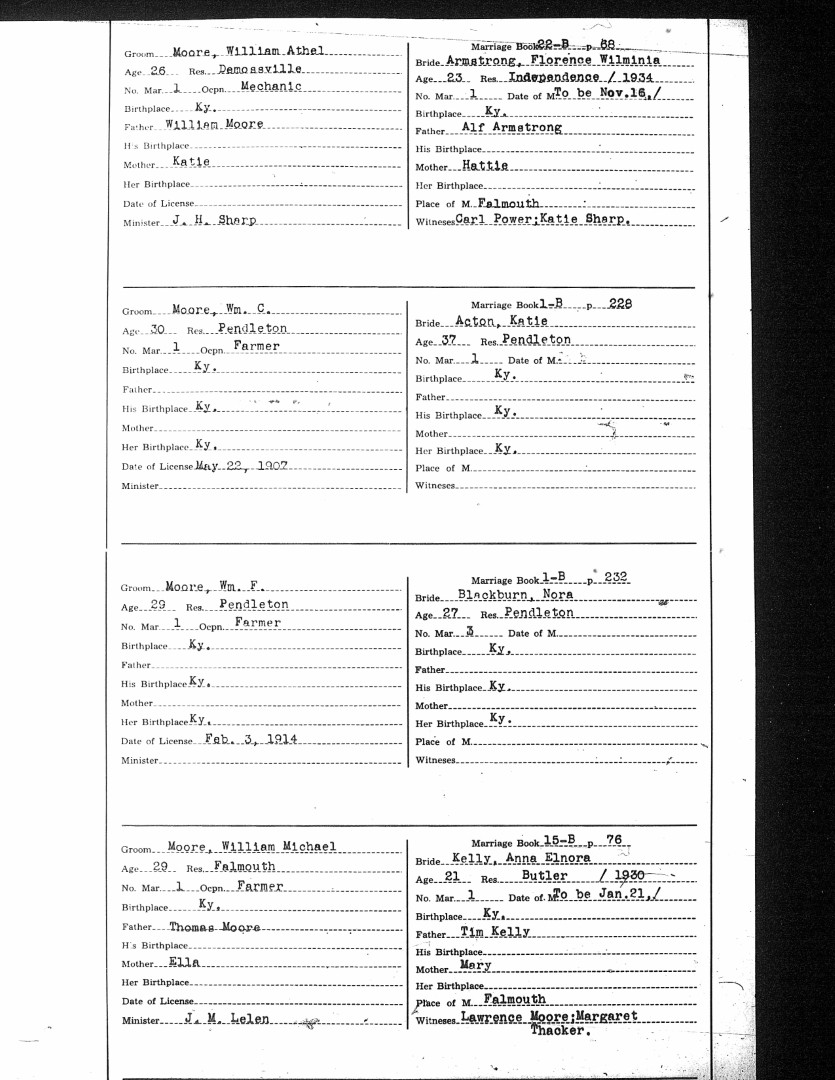 Marriage Book 22-B p. 58
Groom Moore, William Athel
Bride Armstrong, Florence Wilminia
Age 26 Res. Demossville
Age 23 Res. Independence / 1934
No. Mar 1 Ocpn. Mechanic
No. Mar 1 Date of M To be Nov.16,/
Birthplace Ky.
Birthplace Ky.
Father William Moore
Father Alf Armstrong
His Birthplace
His Birthplace
Mother Katie
Mother Hattie
Her Birthplace
Her Birthplace
Date of License
Place of M. Falmouth
Minister J. H. Sharp
Witneses Carl Power;Katie Sharp.
Marriage Book 1-B p. 228
Groom Moore, Wm. C.
Bride Acton, Katie
Age 30 Res. Pendleton
Age 37 Res. Pendleton
No. Mar. 1 Ocpn. Farmer
No. Mar. 1 Date of M.
Birthplace Ky.
Birthplace Ky.
Father
Father
His Birthplace Ky.
His Birthplace Ky.
Mother
Mother
Her Birthplace Ky.
Her Birthplace Ky.
Date of License May 22, 1907
Place of M.
Minister
Witneses
Marriage Book 1-B p. 232
Groom Moore, Wm. F.
Bride Blackburn, Nora
Age 29 Res. Pendleton
Age 27 Res. Pendleton
No. Mar 1 Ocpn. Farmer
No. Mar. 3 Date of M.
Birthplace Ky.
Birthplace Ky.
Father
Father
His Birthplace Ky.
His Birthplace Ky.
Mother
Mother
Her Birthplace Ky.
Her Birthplace Ky.
Date of License Feb. 3, 1914
Place of M.
Minister
Witneses
Marriage Book 15-B p. 76
Groom Moore, William Michael
Bride Kelly, Anna Elnora
Age 29 Res. Falmouth
Age 21 Res. Butler / 1930
No. Mar. 1 Ocpn. Farmer
No. Mar. 1 Date of M To be Jan.21,/
Birthplace Ky.
Birthplace Ky.
Father Thomas Moore
Father Tim Kelly
His Birthplace
His Birthplace
Mother Ella
Mother Mary
Her Birthplace
Her Birthplace
Date of License
Place of M. Falmouth
Minister J. M. Lelen
Witneses Lawrence Moore;Margaret
Thacker.